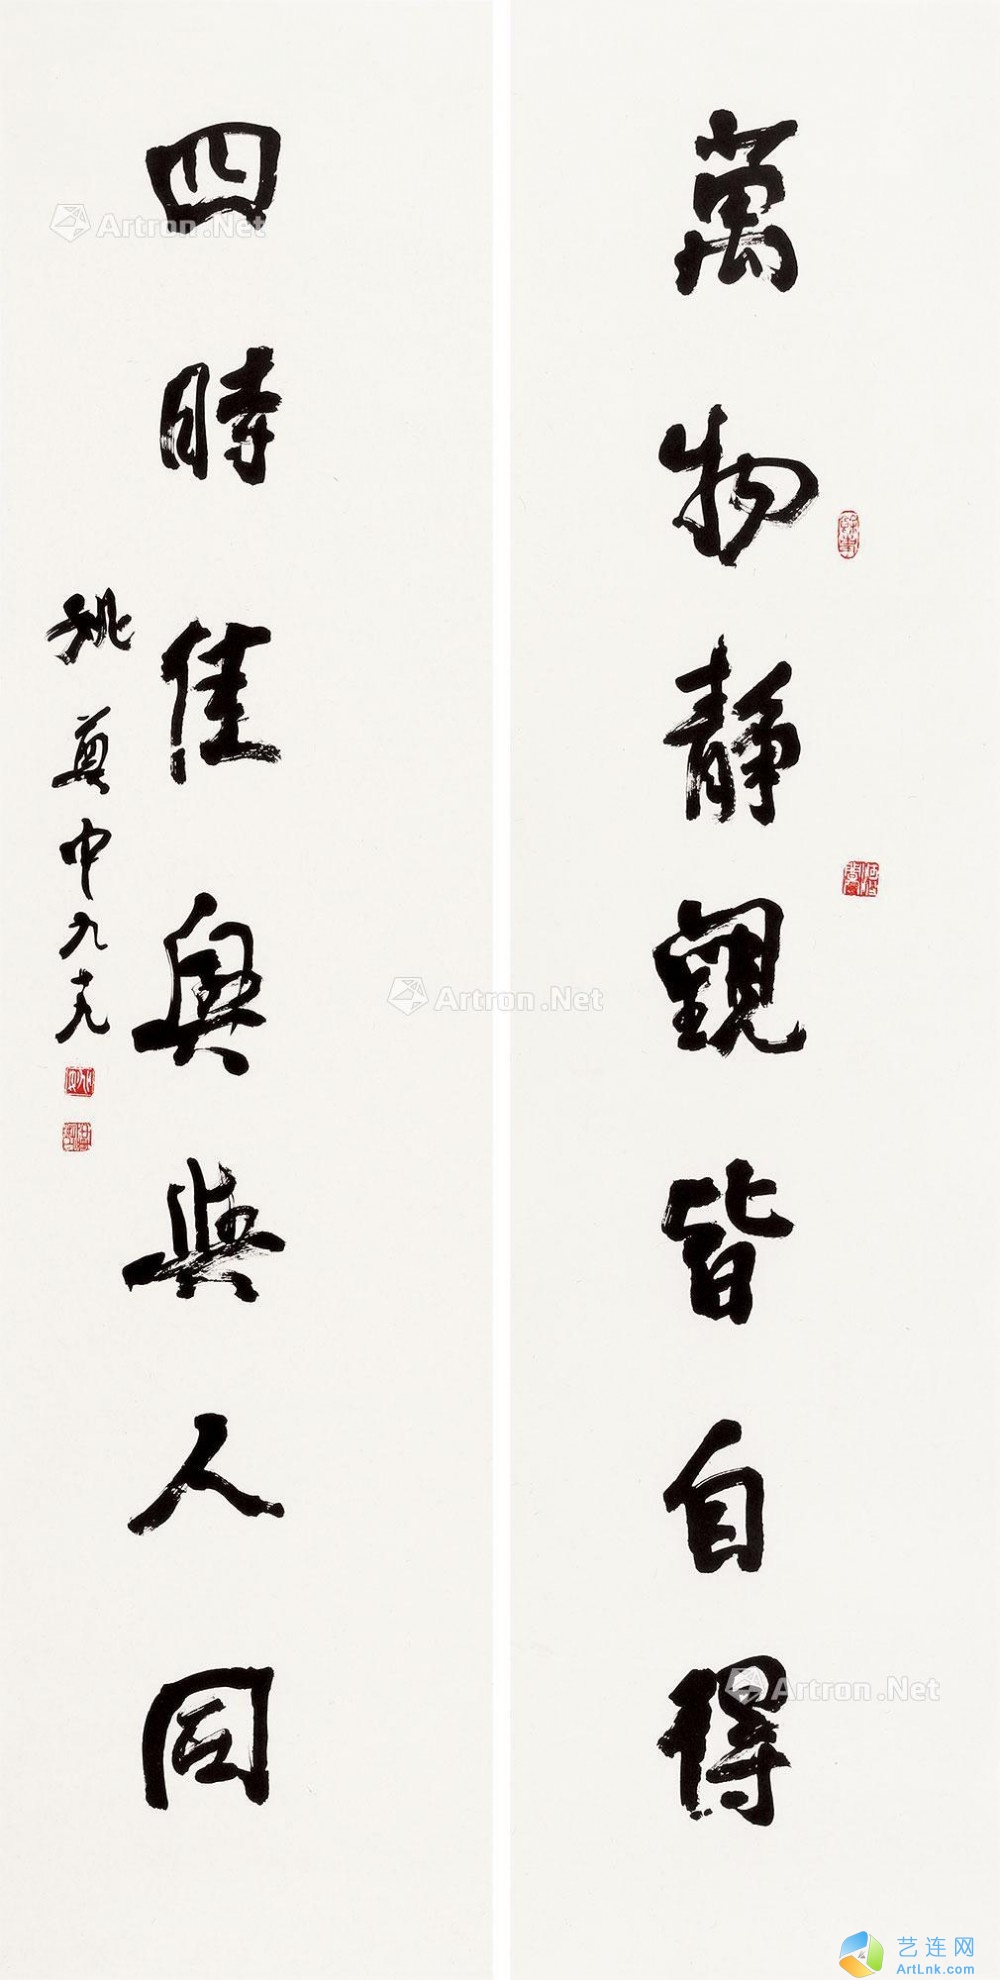 萬物靜觀皆自得
四時佳興與人同
姚奠中九十九
Artron.Net
Artron.Net
Artron.Net
艺连网
ArtLnk.com